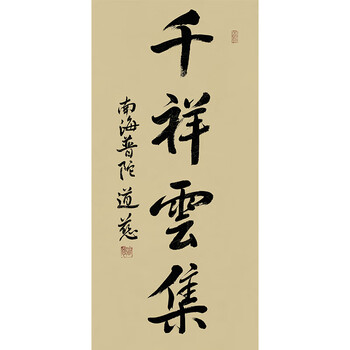 千祥雲集
南海普陀 道慈